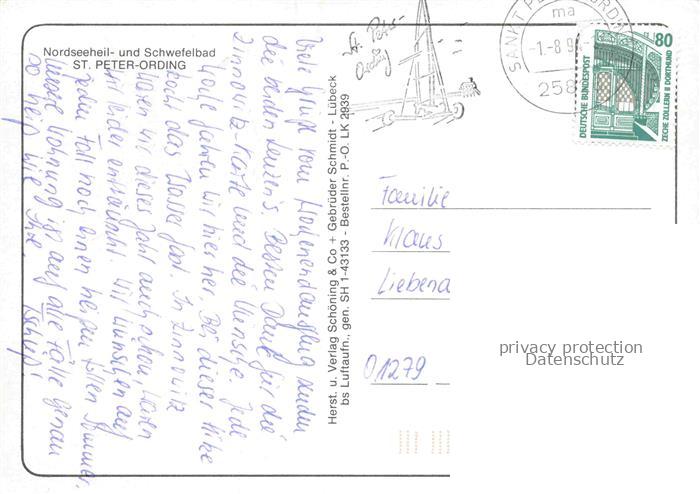 Nordseeheil- und Schwefelbad
ST. PETER-ORDING
Viele Grüße vom Wochenendausflug senden
die beiden Bessen Dank für die
Zinnowitz-Karte und die Wünsche. Jede
Woche fahren wir hier her. Bei dieser Hitze
kocht das Wasser fast. In Zinnowitz
waren wir dieses Jahr auch schon, waren
wir leider enttäuscht. Wir wünschen auf
jeden Fall noch einen heißen tollen Sommer.
Unsere Wohnung ist auf alle Fälle genau
so heiß wie Ihre.
Tschüß!
Herst. u. Verlag Schöning & Co + Gebrüder Schmidt - Lübeck
bs Luftaufn., gen. SH 1-43133 - Bestellnr. P.-O. LK 2839
St. Peter-
Ording
SANKT PETER-ORDING
ma
-1.-8.9
258
80
DEUTSCHE BUNDESPOST
ZECHE ZOLLERN II DORTMUND
Familie
Klaus
Liebena
01279
privacy protection
Datenschutz